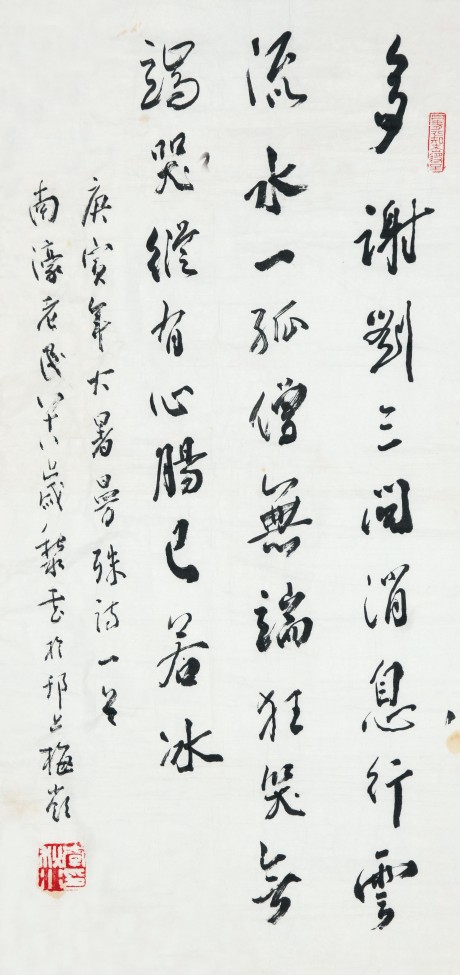 多謝劉三問消息行雲
流水一孤僧無端狂笑无
端哭縱有心腸已若冰
庚寅年大暑曼殊詩一首
南濠老民八十八歲於邗上梅嶺